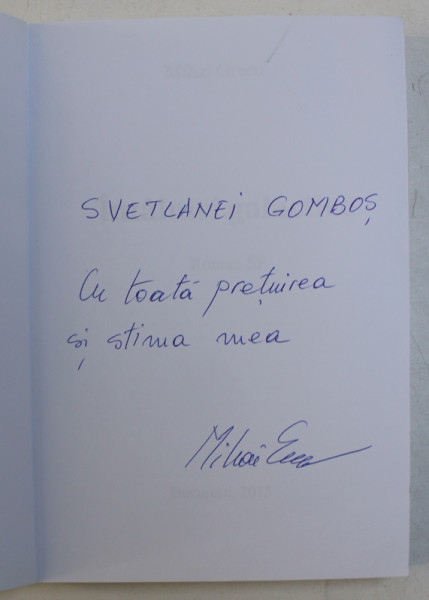 SVETLANEI GOMBOȘ
Cu toată prețuirea
și stima mea
Mihai
București, 2015